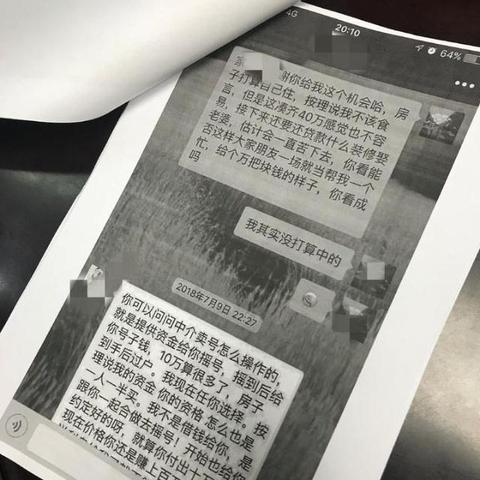 4G
20:10
64%
谢你给我这个机会哈,房
子打算自己住,按理说我不该食
言,但是这凑齐40万感觉也不容
易,接下来还要还贷款什么装修娶
老婆,估计会一直苦下去,你看能
否这样大家朋友一场就当帮我一个
忙,给个万把块钱的样子,你看成
吗
我其实没打算中的
2018年7月9日 22:27
你可以问问中介卖号怎么操作的,
就是提供资金给你摇号,摇到后给
你号子钱,10万算很多了,房子
到手后过户。我现在任你选择。按
理说我的资金 你的资格 怎么也是
一人一半买。我不是借钱给你,是
跟你一起合做去摇号!开始也给你
约定好的呀,就算你付出十万
现在价格你还是赚上百万